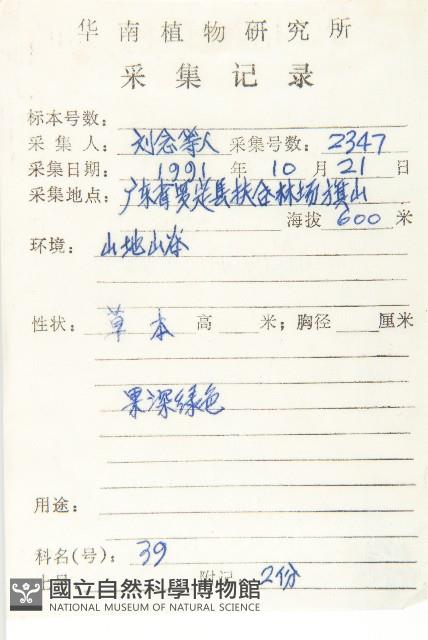 华南植物研究所
采集记录
标本号数：
采集人： 刘念等人 采集号数： 2347
采集日期： 1991 年 10 月 21 日
采集地点： 广东省罗定县扶合林场旗山
海拔 600 米
环境： 山地山谷
性状： 草本 高 米；胸径 厘米
果深绿色
用途：
科名(号)： 39
附记 2份
國立自然科學博物館
NATIONAL MUSEUM OF NATURAL SCIENCE